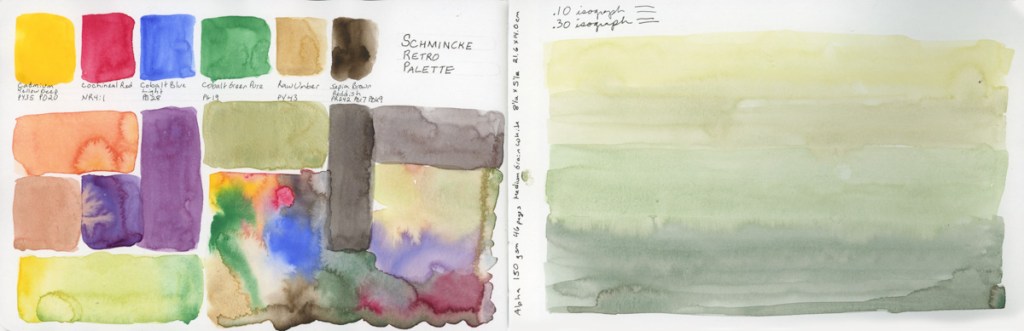 Cadmium
Yellow Deep
PY35 PO20
Cochineal Red
NR4:1
Cobalt Blue
Light
PB28
Cobalt Green Pure
PG19
Raw Umber
PY43
Sepia Brown
Reddish
PR242
SCHMINCKE
RETRO
PALETTE
Alpha 150 gsm 46 pages medium grain white 8½ x 5½ in 21.6 x 14.0 cm
.10 isograph
.30 isograph